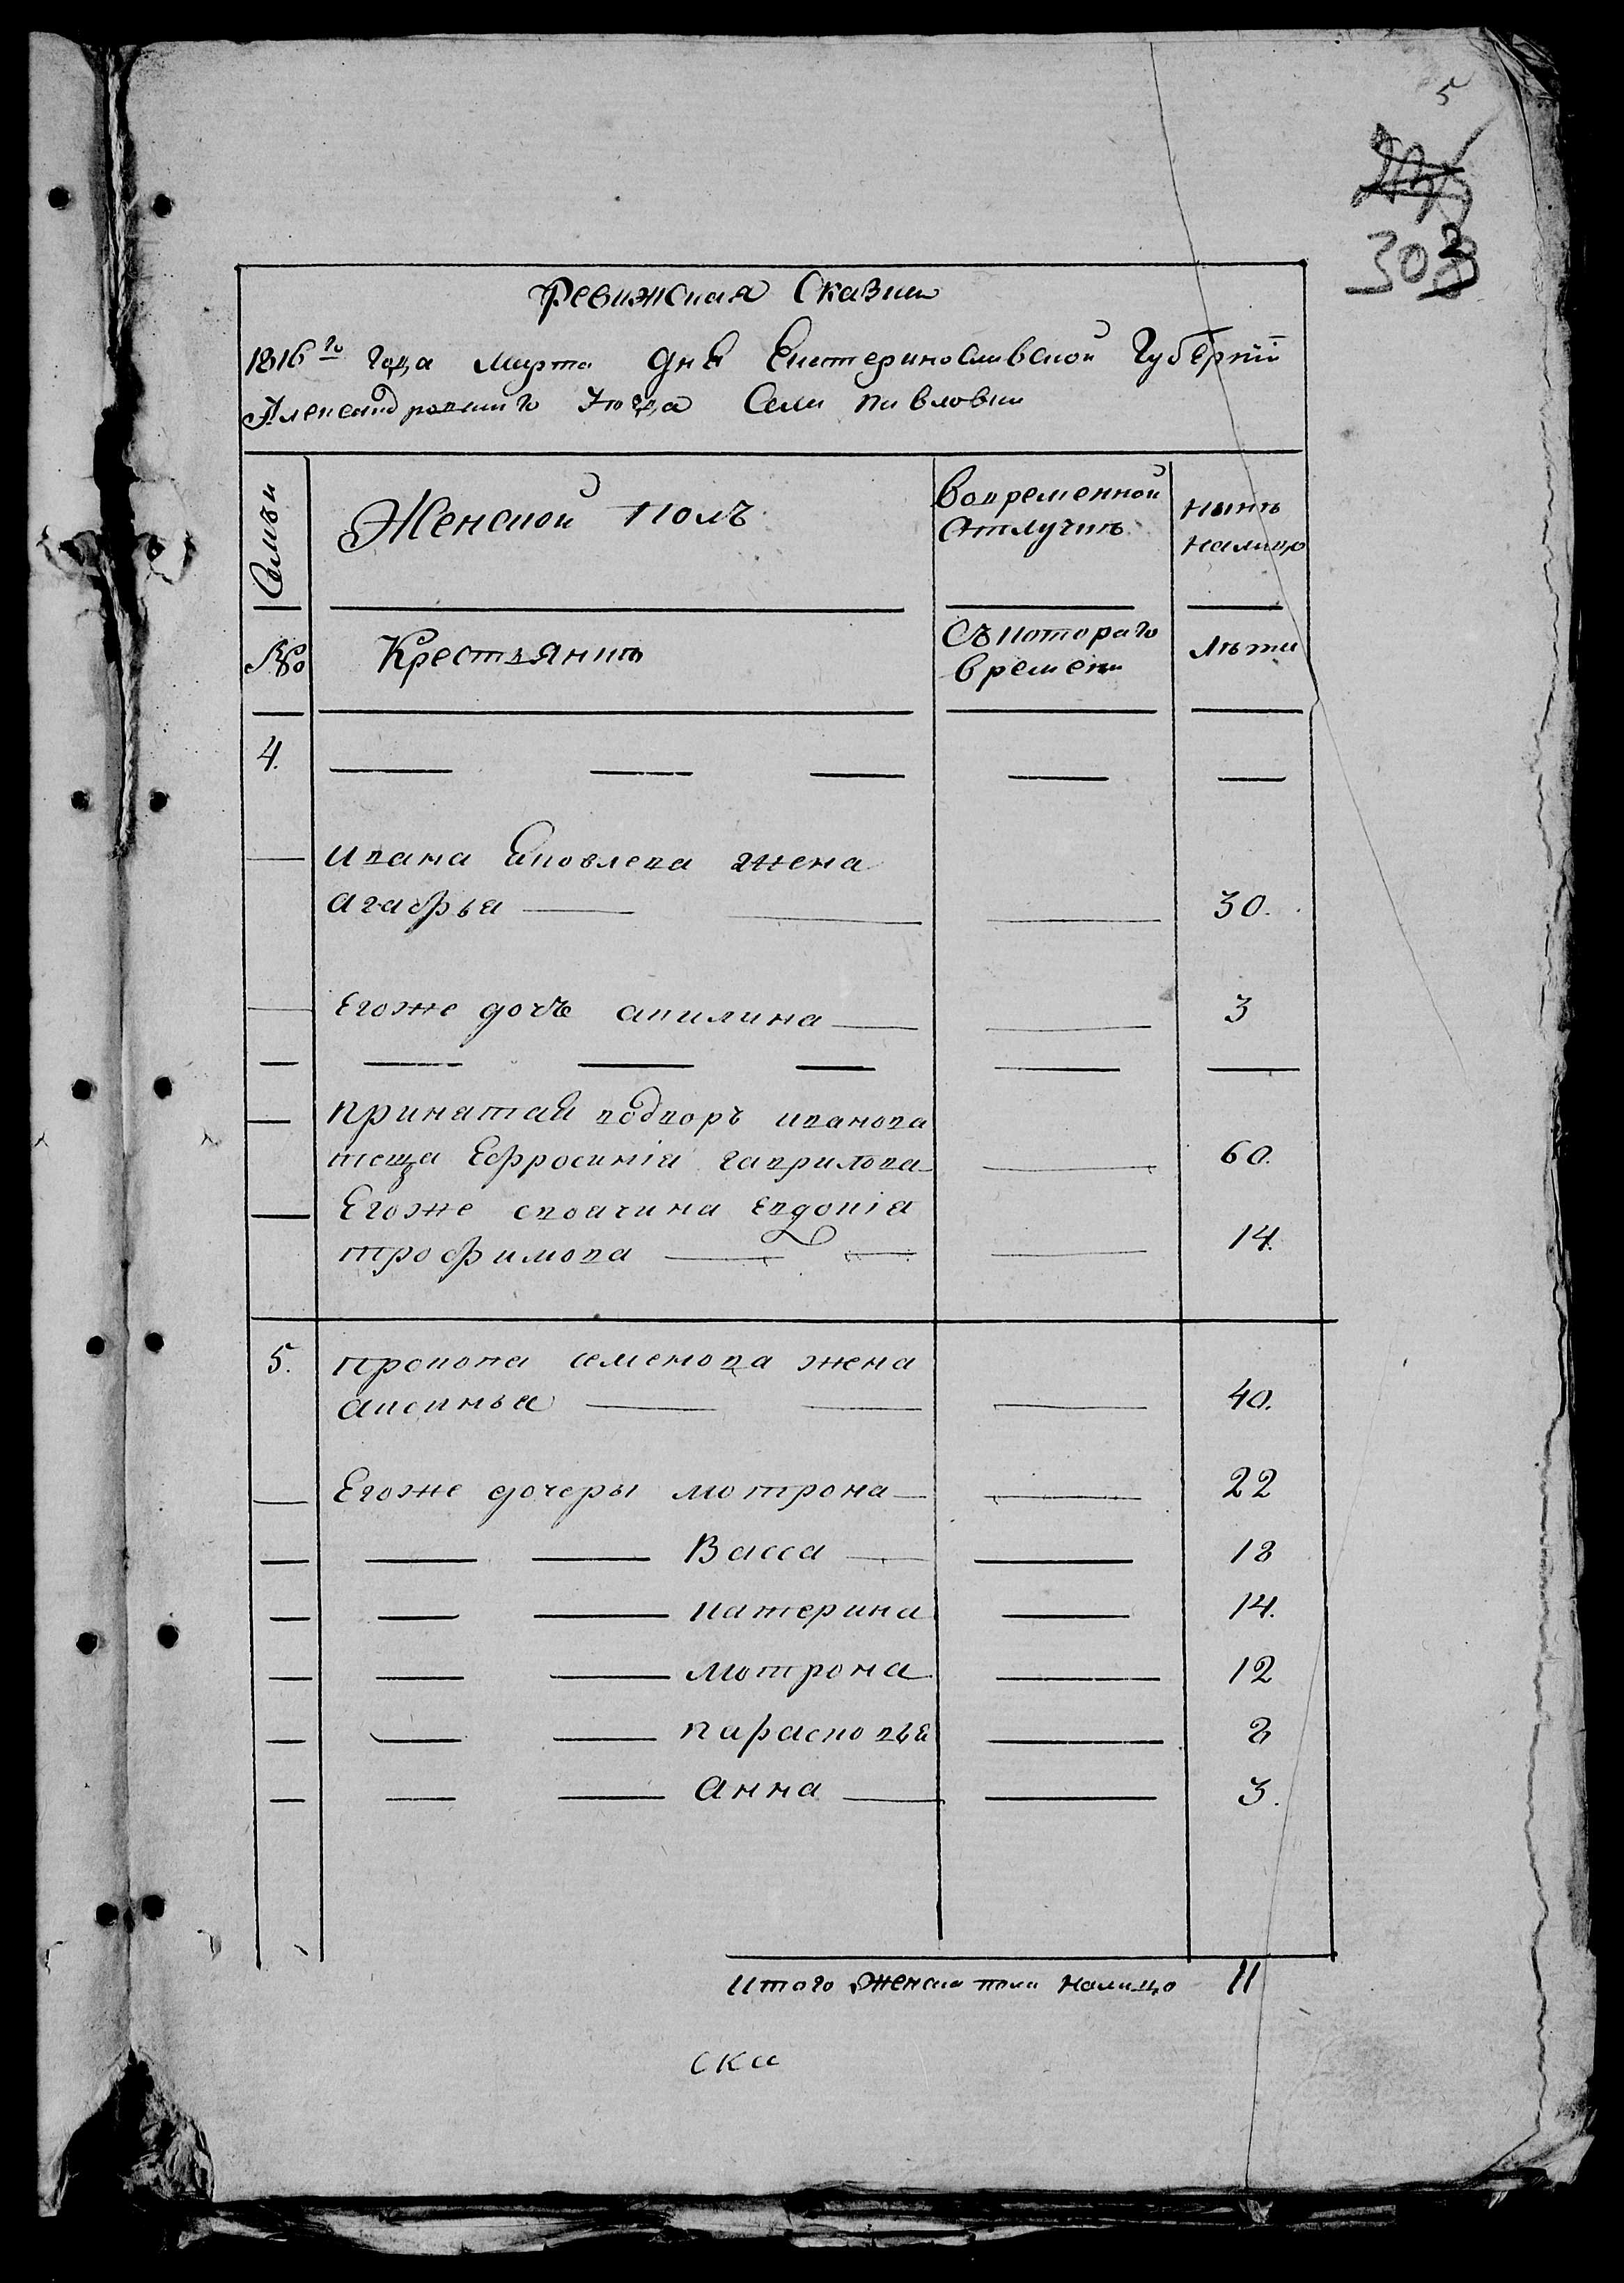 5
303
Ревижская Сказка
1816го года Марта дня Екатеринославской Губернии
Александровского уезда Села Павловки
Семьи
Женской полъ
Вовременной
отлучкѣ
нынѣ
налицо
№
Крестьянкѣ
Съкотораго
времени
лѣта
4.
ивана яковлева жена
агафья 30.
Егоже дочь акилина 3
принятая водворъ иванова
теща Ефросинія гаврилова 60.
Егоже своячина Евдокія
трофимова 14.
5. прокопа семенова жена
аксинья 40.
Егоже дочеры мотрона 22
Васса 18
катерина 14.
мотрона 12
парасковья 8
Анна 3.
Итого женска пола налицо 11
ска